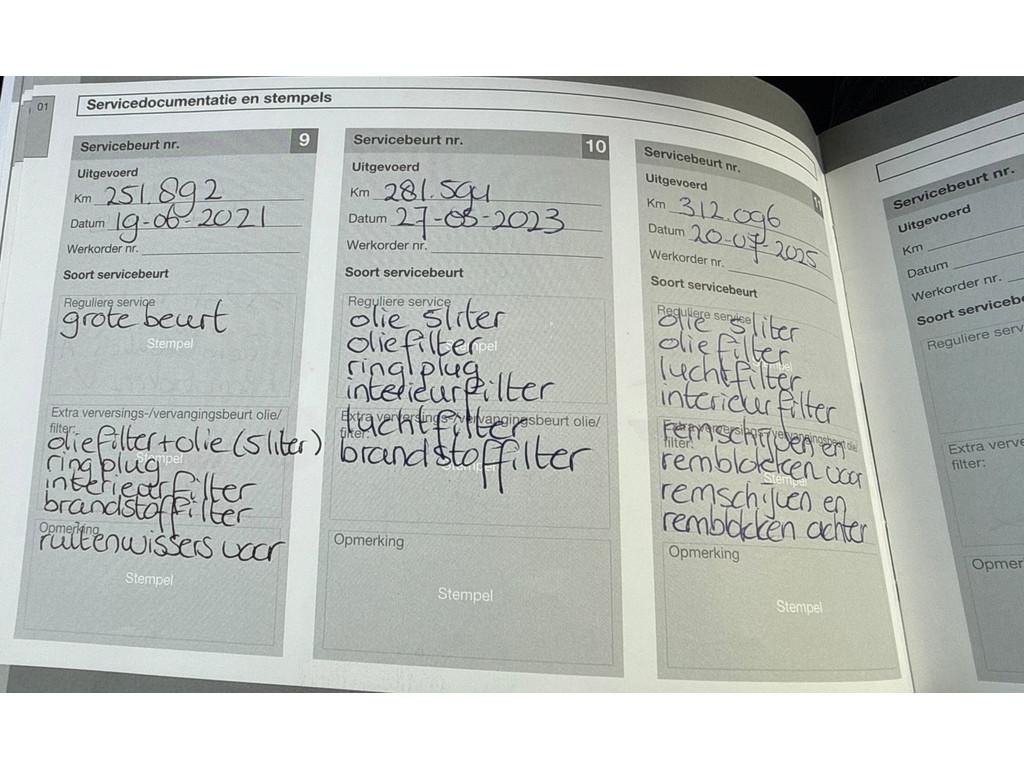 01
Servicedocumentatie en stempels
Servicebeurt nr. 9
Uitgevoerd
Km 251.892
Datum 19-06-2021
Werkorder nr.
Soort servicebeurt
Reguliere service
grote beurt
Stempel
Extra verversings-/vervangingsbeurt olie/
filter:
oliefilter + olie (5 liter)
Stempel
ringplug
interieurfilter
brandstoffilter
Opmerking
ruitenwissers voor
Stempel
Servicebeurt nr. 10
Uitgevoerd
Km 281.594
Datum 27-05-2023
Werkorder nr.
Soort servicebeurt
Reguliere service
olie 5 liter
oliefilter
Stempel
ringplug
interieurfilter
luchtfilter
Extra verversings-/vervangingsbeurt olie/
filter:
brandstoffilter
Stempel
Opmerking
Stempel
Servicebeurt nr. 11
Uitgevoerd
Km 312.096
Datum 20-07-2025
Werkorder nr.
Soort servicebeurt
Reguliere service
olie 5 liter
oliefilter
luchtfilter
interieurfilter
remschijven en
filter:
remblokken voor
Stempel
remschijven en
remblokken achter
Opmerking
Stempel
Servicebeurt nr.
Uitgevoerd
Km
Datum
Werkorder nr.
Soort servicebe
Reguliere servic
Extra verve
filter:
Opmer